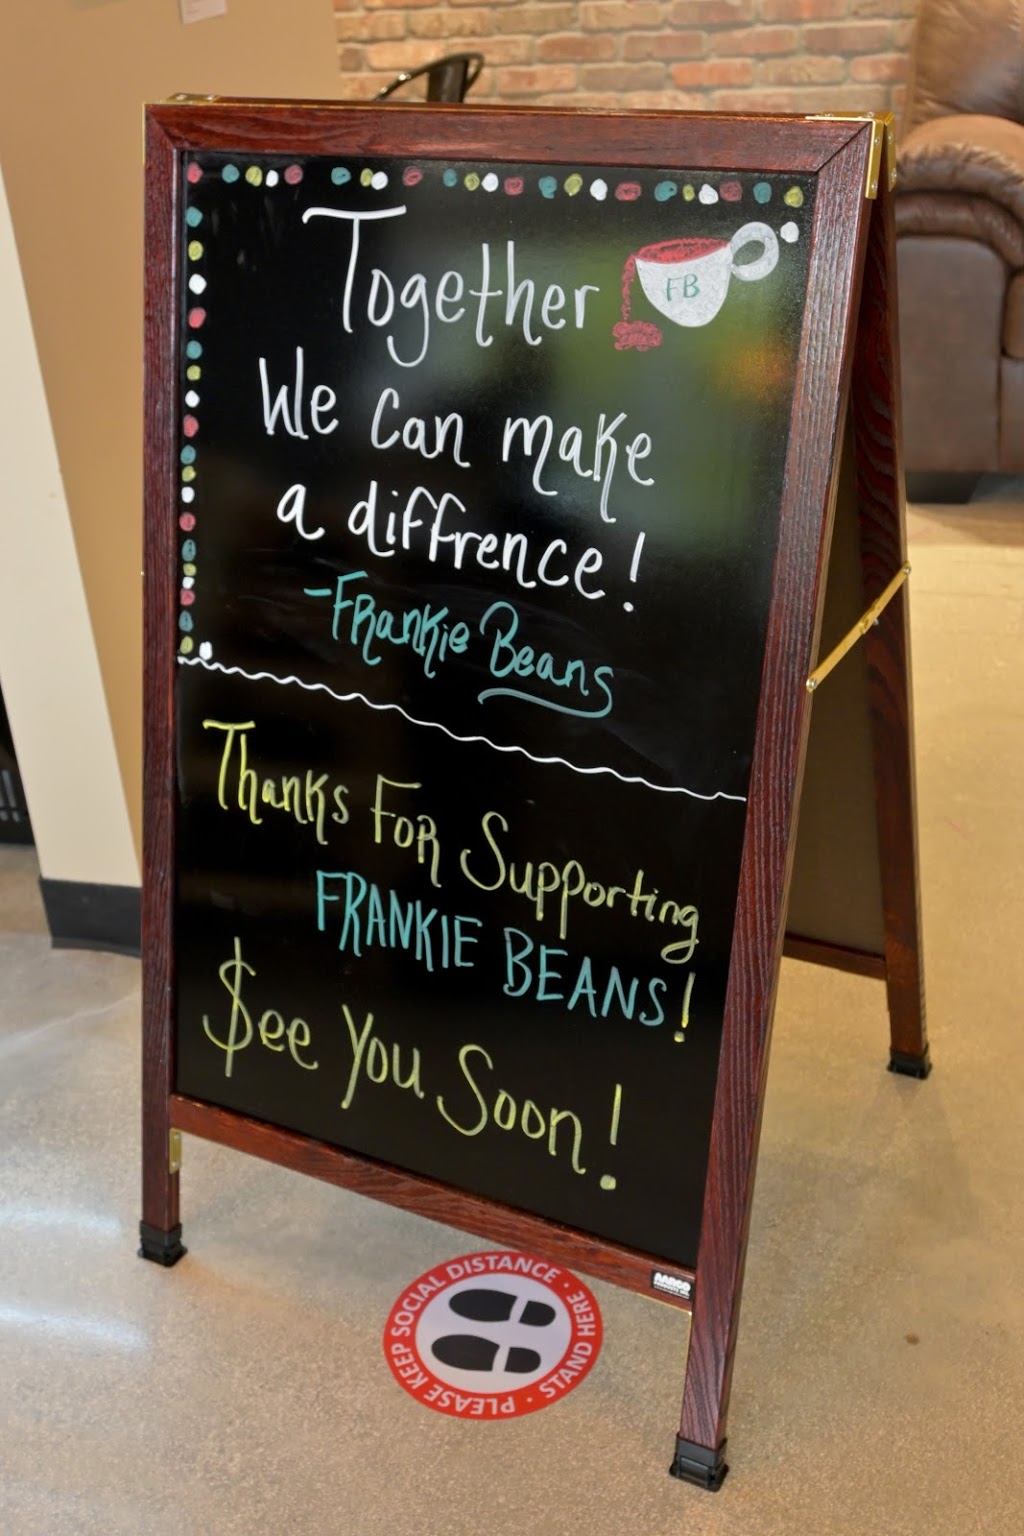 Together
FB
We Can make
a diffrence!
-Frankie Beans
Thanks For Supporting
FRANKIE BEANS!
$ee You Soon!
AARCO
PLEASE KEEP SOCIAL DISTANCE · STAND HERE ·